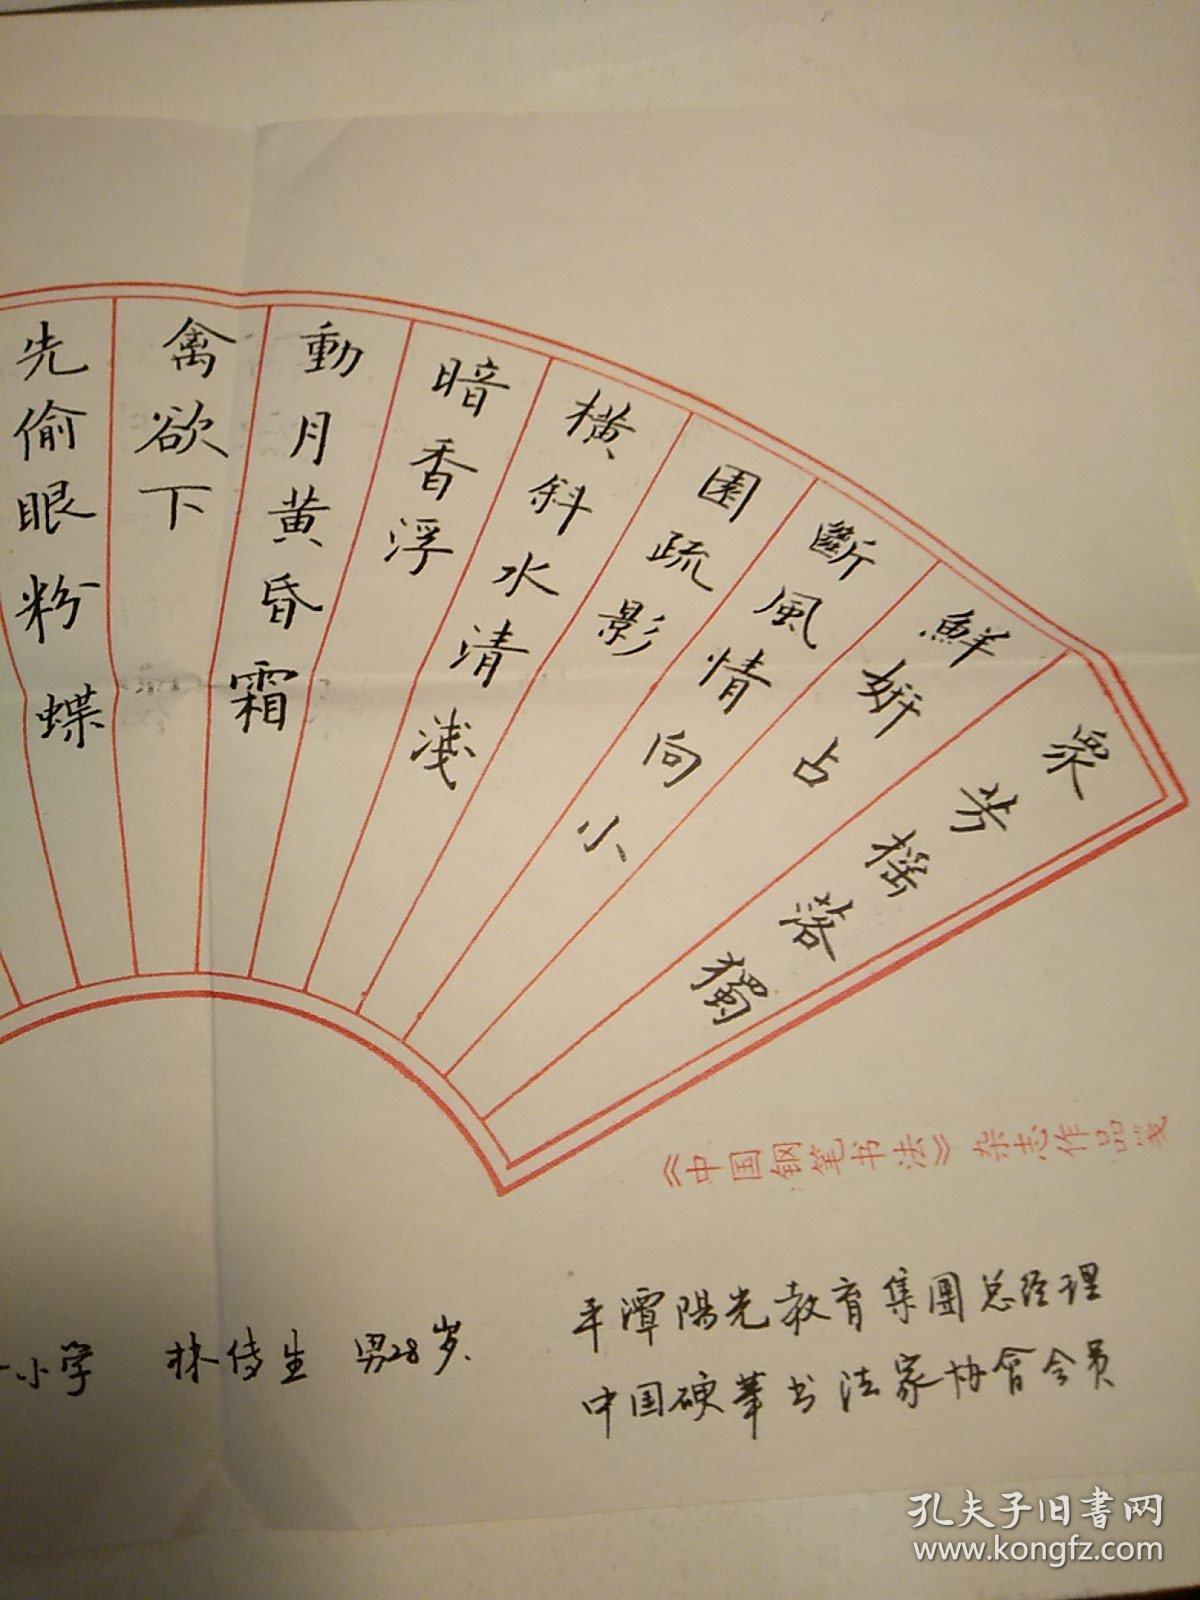 眾芳摇落獨
鮮妍占
斷風情向小
園疏影
横斜水清淺
暗香浮
動月黄昏霜
禽欲下
先偷眼粉蝶
《中国钢笔书法》杂志作品笺
平潭陽光教育集團总经理
中国硬筆书法家协會会员
小学 林 生 男28岁.
孔夫子旧書网
www.kongfz.com